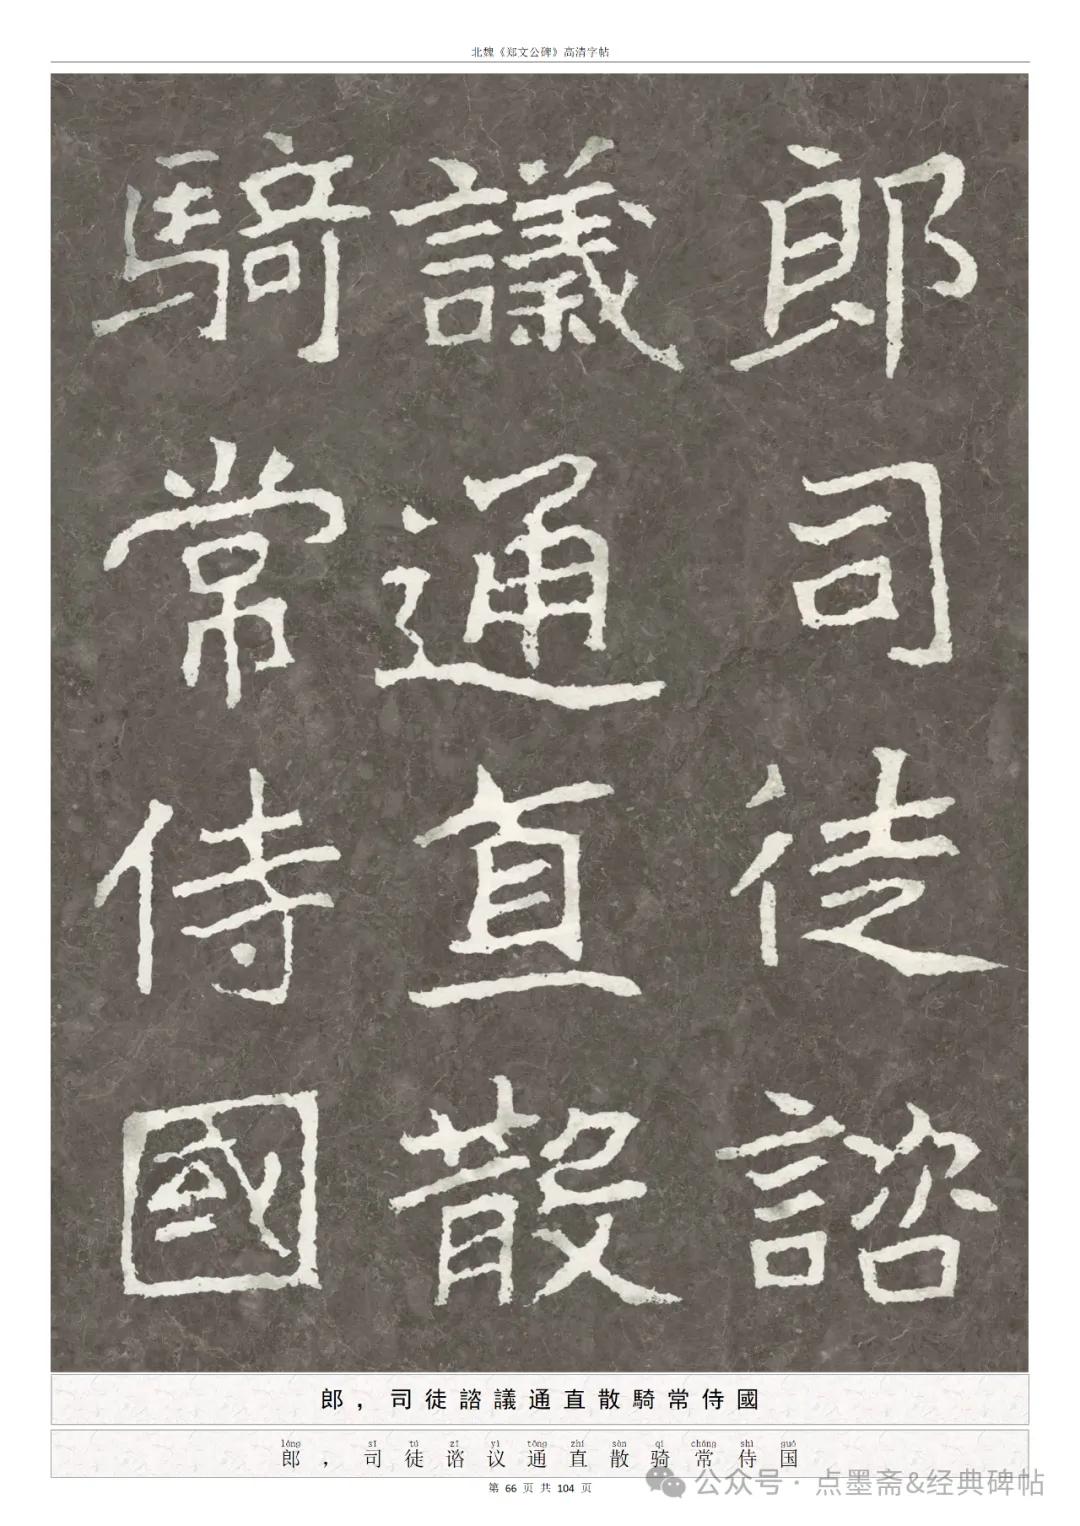 北魏《郑文公碑》高清字帖
郎司徒諮
議通直散
騎常侍國
郎，司徒諮議通直散騎常侍國
láng sī tú zī yì tōng zhí sàn qí cháng shì guó
郎，司徒谘议通直散骑常侍国
第 66 页 共 104 页
公众号 · 点墨斋&经典碑帖